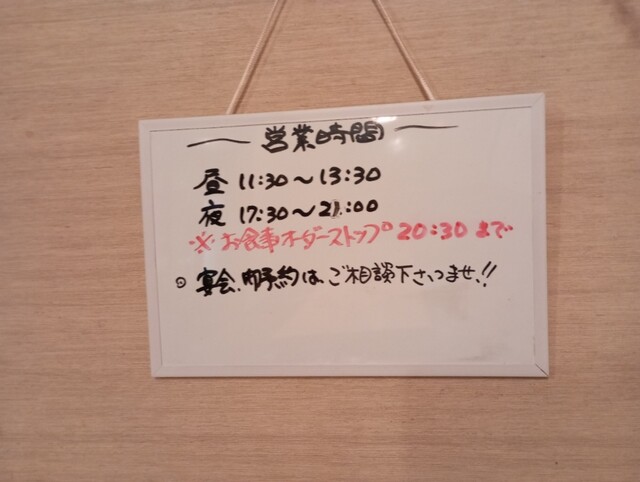 営業時間
昼 11:30～13:30
夜 17:30～21:00
※お食事オーダーストップ 20:30まで
◎宴会、御予約は、ご相談下さいませ!!